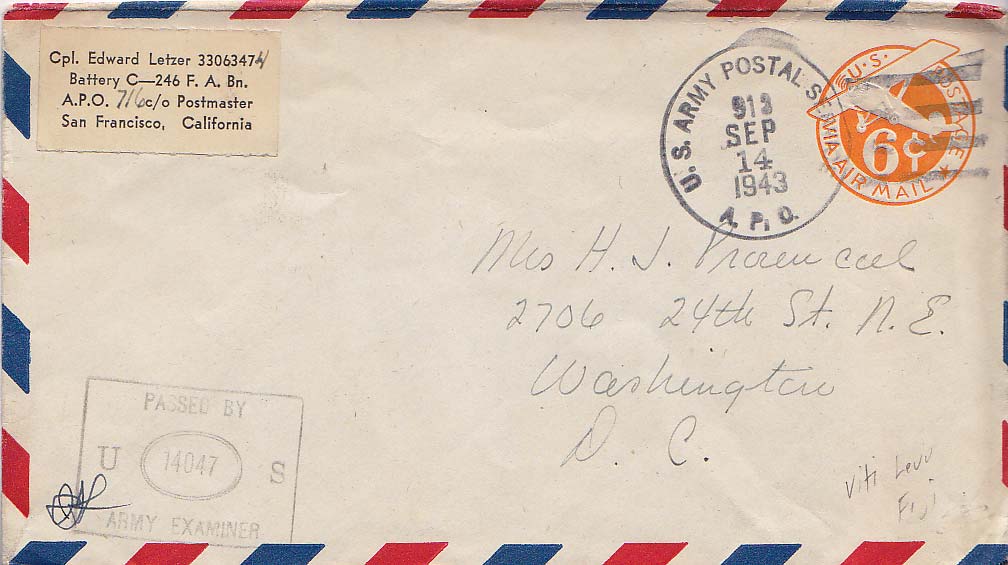 Cpl. Edward Letzer 33063474
Battery C—246 F. A. Bn.
A.P.O. 716 c/o Postmaster
San Francisco, California
U.S. ARMY POSTAL SE
913
SEP
14
1943
A. P. O.
U.S. POSTAGE
6¢
VIA AIR MAIL
Mrs H. J. Provencal
2706 24th St. N.E.
Washington
D. C.
PASSED BY
U 14047 S
ARMY EXAMINER
Viti Levu
Fiji